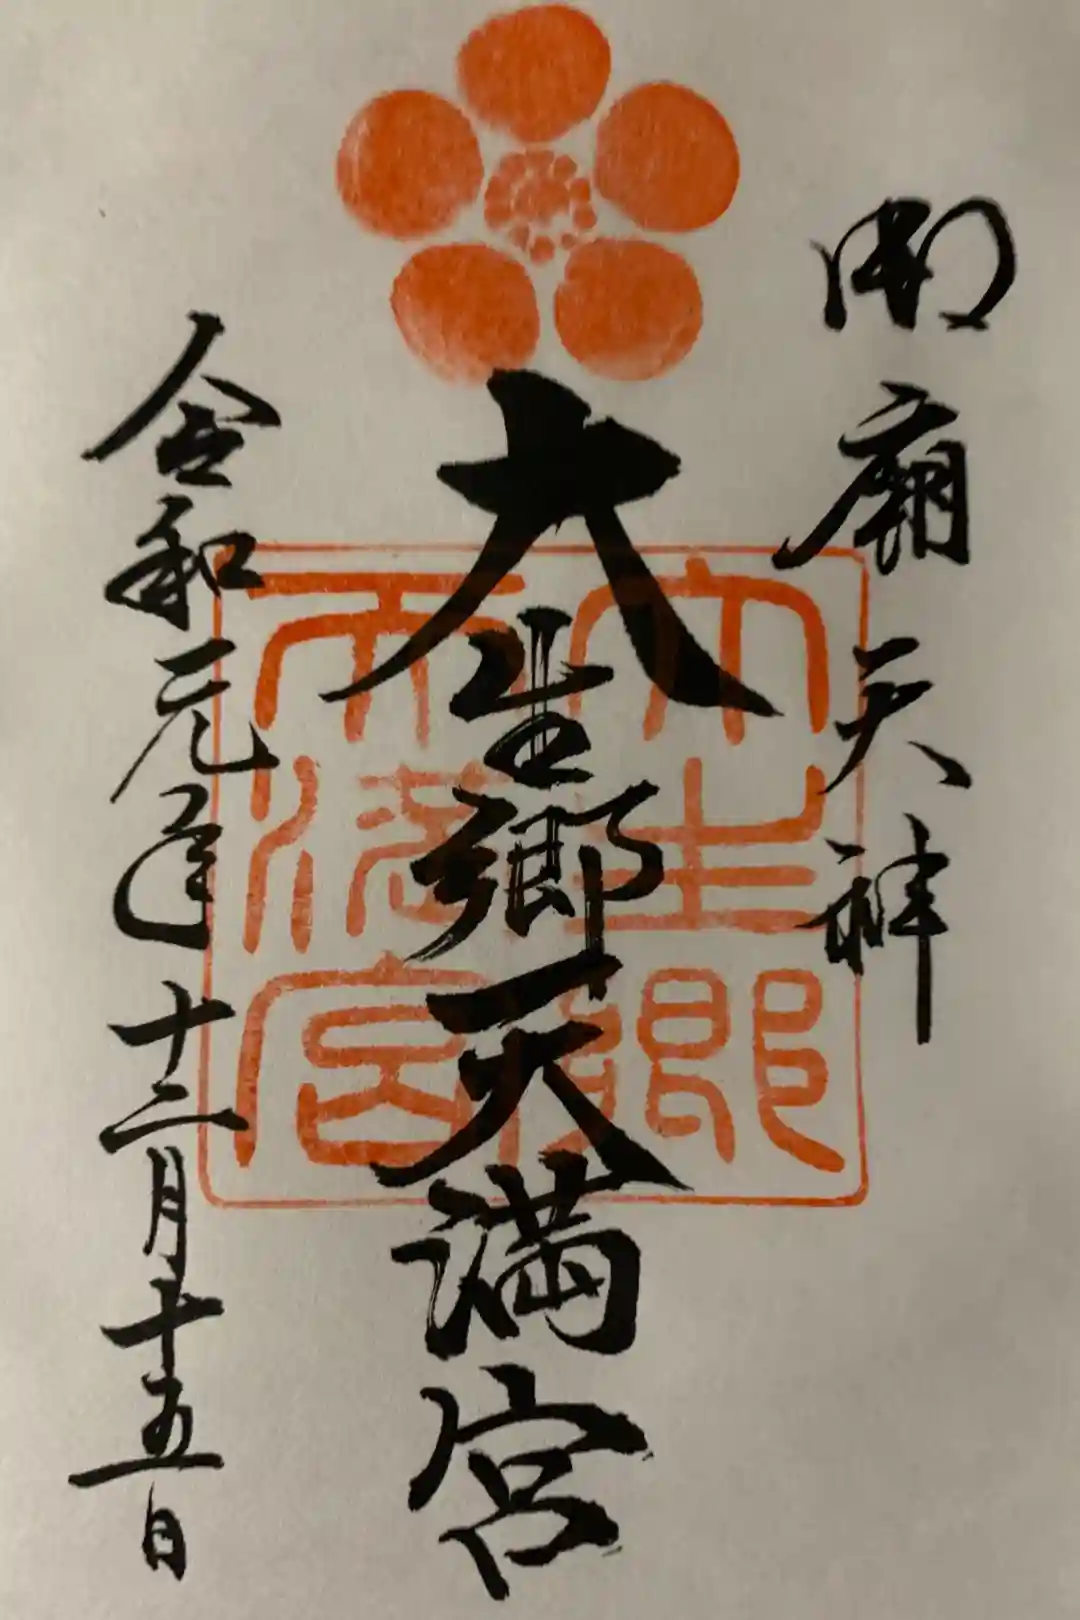 御廟天神
大生郷天満宮
令和元年十二月十五日
大生郷
天満宮